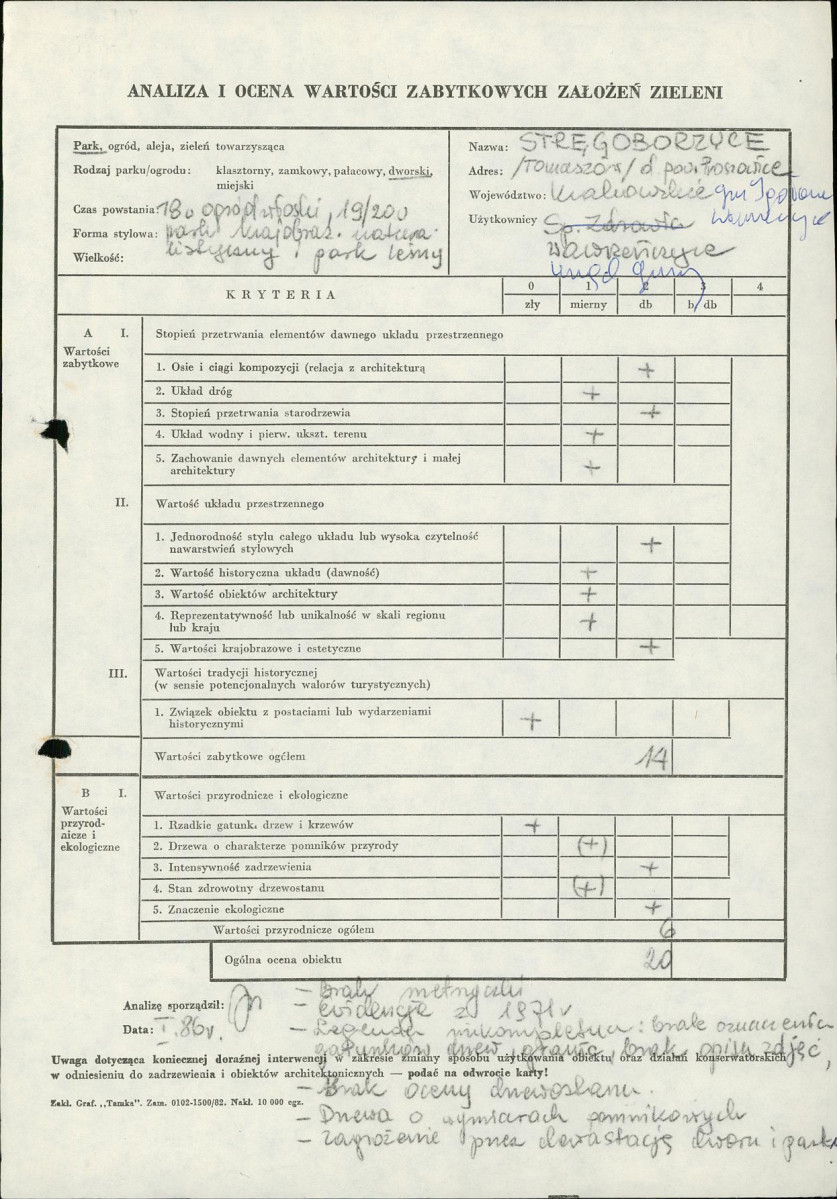 ANALIZA I OCENA WARTOŚCI ZABYTKOWYCH ZAŁOŻEŃ ZIELENI
Park, ogród, aleja, zieleń towarzysząca
Rodzaj parku/ogrodu: klasztorny, zamkowy, pałacowy, dworski,
miejski
Czas powstania: 18w ogród włoski, 19/20w
Forma stylowa: park krajobraz. natura-
listyczny i park leśny
Wielkość:
Nazwa: STRĘGOBORZYCE
Adres: /Tomaszów/ d. pow. Proszowice
Województwo: Krakowskie gm Igołomia
Wawrzeńczyce
Użytkownicy Sp. Zdrowia
Wawrzeńczyce
Urząd Gminy
KRYTERIA
0 1 2 3 4
zły mierny db b/db
A I. Stopień przetrwania elementów dawnego układu przestrzennego
Wartości
zabytkowe
1. Osie i ciągi kompozycji (relacja z architekturą +
2. Układ dróg +
3. Stopień przetrwania starodrzewia +
4. Układ wodny i pierw. ukszt. terenu +
5. Zachowanie dawnych elementów architektury i małej
architektury +
II. Wartość układu przestrzennego
1. Jednorodność stylu całego układu lub wysoka czytelność
nawarstwień stylowych +
2. Wartość historyczna układu (dawność) +
3. Wartość obiektów architektury +
4. Reprezentatywność lub unikalność w skali regionu
lub kraju +
5. Wartości krajobrazowe i estetyczne +
III. Wartości tradycji historycznej
(w sensie potencjonalnych walorów turystycznych)
1. Związek obiektu z postaciami lub wydarzeniami
historycznymi +
Wartości zabytkowe ogółem 14
B I. Wartości przyrodnicze i ekologiczne
Wartości
przyrod-
nicze i
ekologiczne
1. Rzadkie gatunk. drzew i krzewów +
2. Drzewa o charakterze pomników przyrody (+)
3. Intensywność zadrzewienia +
4. Stan zdrowotny drzewostanu (+)
5. Znaczenie ekologiczne +
Wartości przyrodnicze ogółem 6
Ogólna ocena obiektu 20
Analizę sporządził:
Data: I. 86r.
– Braki metryczki
– ewidencja z 1971r
– Legenda niekompletna: brak oznaczenia
gatunków drzew, brak opisu zdjęć,
Uwaga dotycząca koniecznej doraźnej interwencji w zakresie zmiany sposobu użytkowania obiektu oraz działań konserwatorskich
w odniesieniu do zadrzewienia i obiektów architektonicznych — podać na odwrocie karty!
– Brak oceny drzewostanu.
Zakł. Graf. „Tamka". Zam. 0102-1500/82. Nakł. 10 000 egz.
– Drzewa o wymiarach pomnikowych
– Zagrożenie przez dewastację dworu i parku